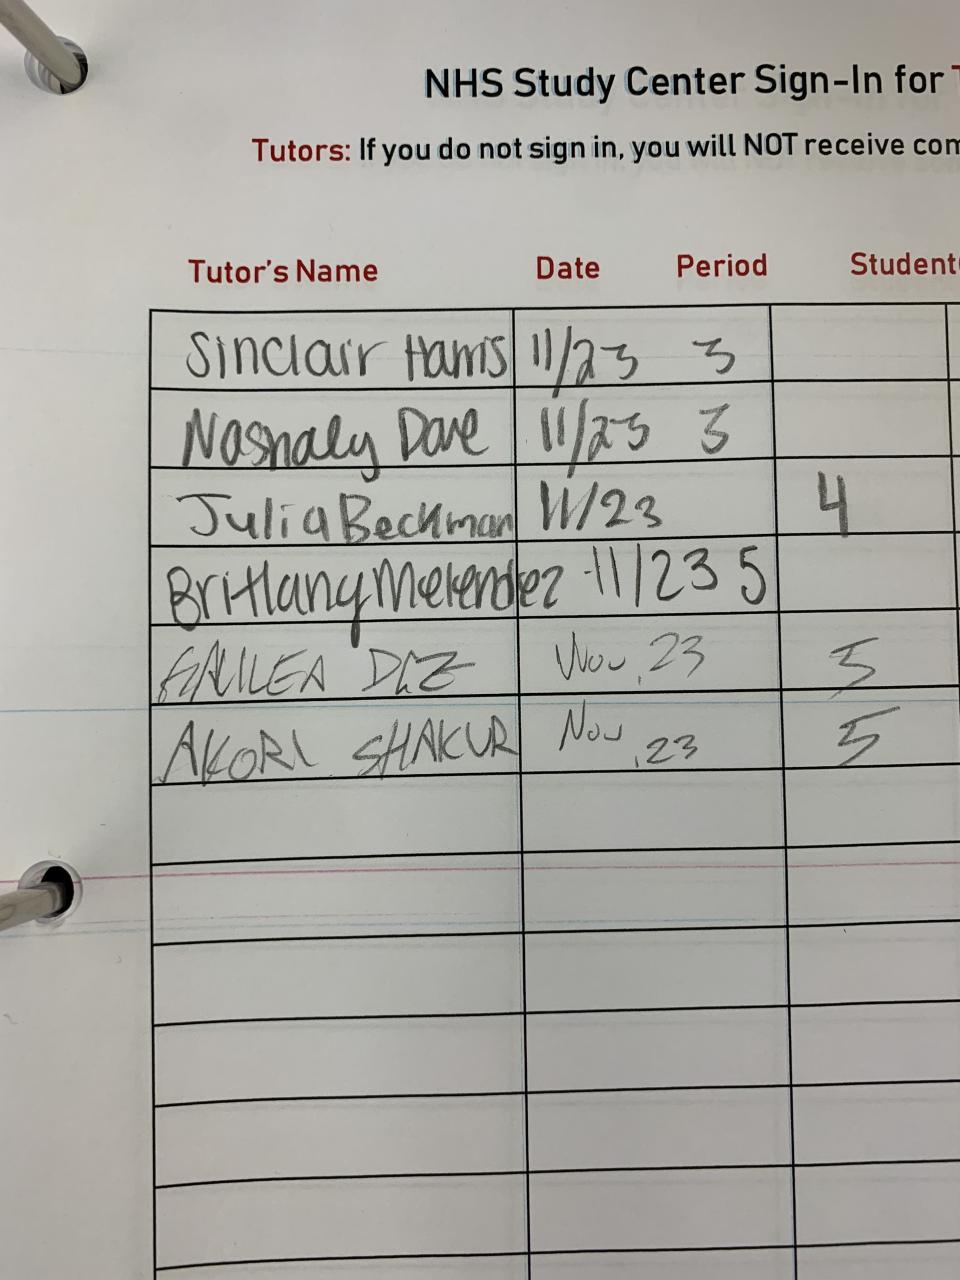 NHS Study Center Sign-In for
Tutors: If you do not sign in, you will NOT receive
Tutor's Name Date Period Student
Sinclair Harris 11/23 3
Nashaly Dave 11/23 3
Julia Beckman 11/23 4
Brittany Melendez 11/23 5
GALILEA DIAZ Nov, 23 5
AKORI SHAKUR Nov, 23 5